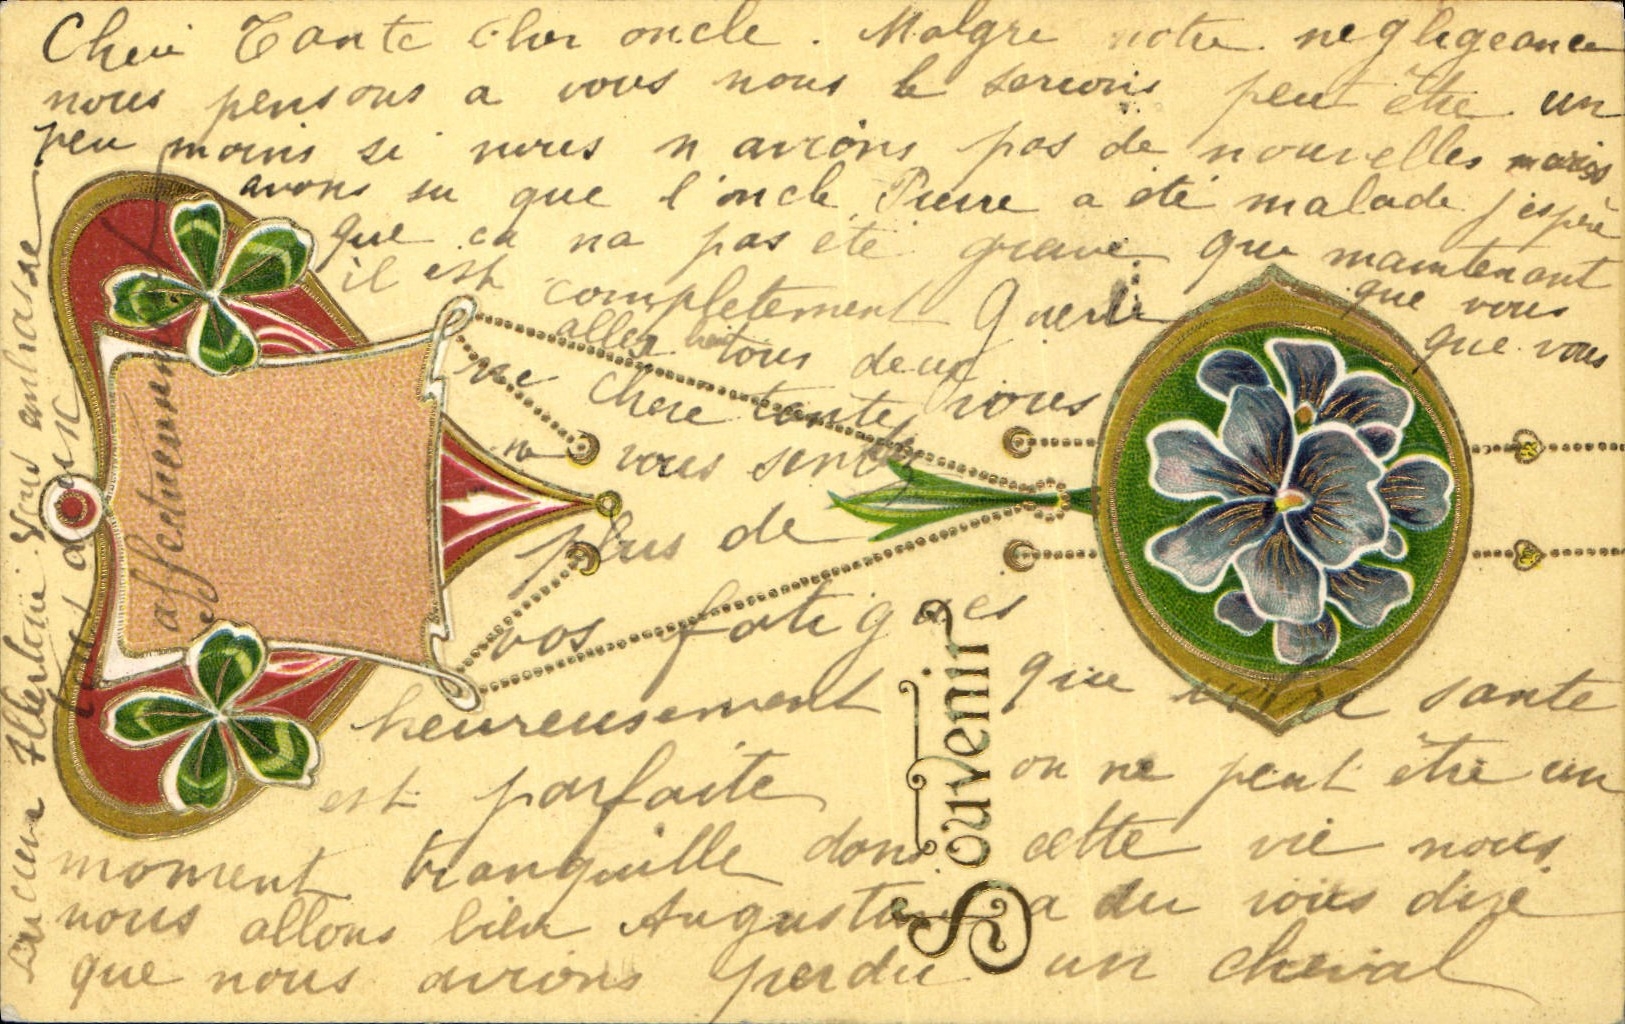 Cher Tante Cher oncle. Malgre notre negligeance
nous pensons a vous nous le serions peut être un
peu moins si nous n avions pas de nouvelles
avons su que l'oncle Pierre a été malade j'espère
que ca na pas ete grave que maintenant
il est completement Gueri que vous
allez bien tous deux que vous
ne chere tante vous
vous sentez
plus de
vos fatigues
heureusement que sante
est parfaite on ne peut être un
moment tranquille dans cette vie nous
nous allons bien Augustin a du vous dire
que nous avions perdu un cheval
Souvenir
affectueusement
vous embrasse